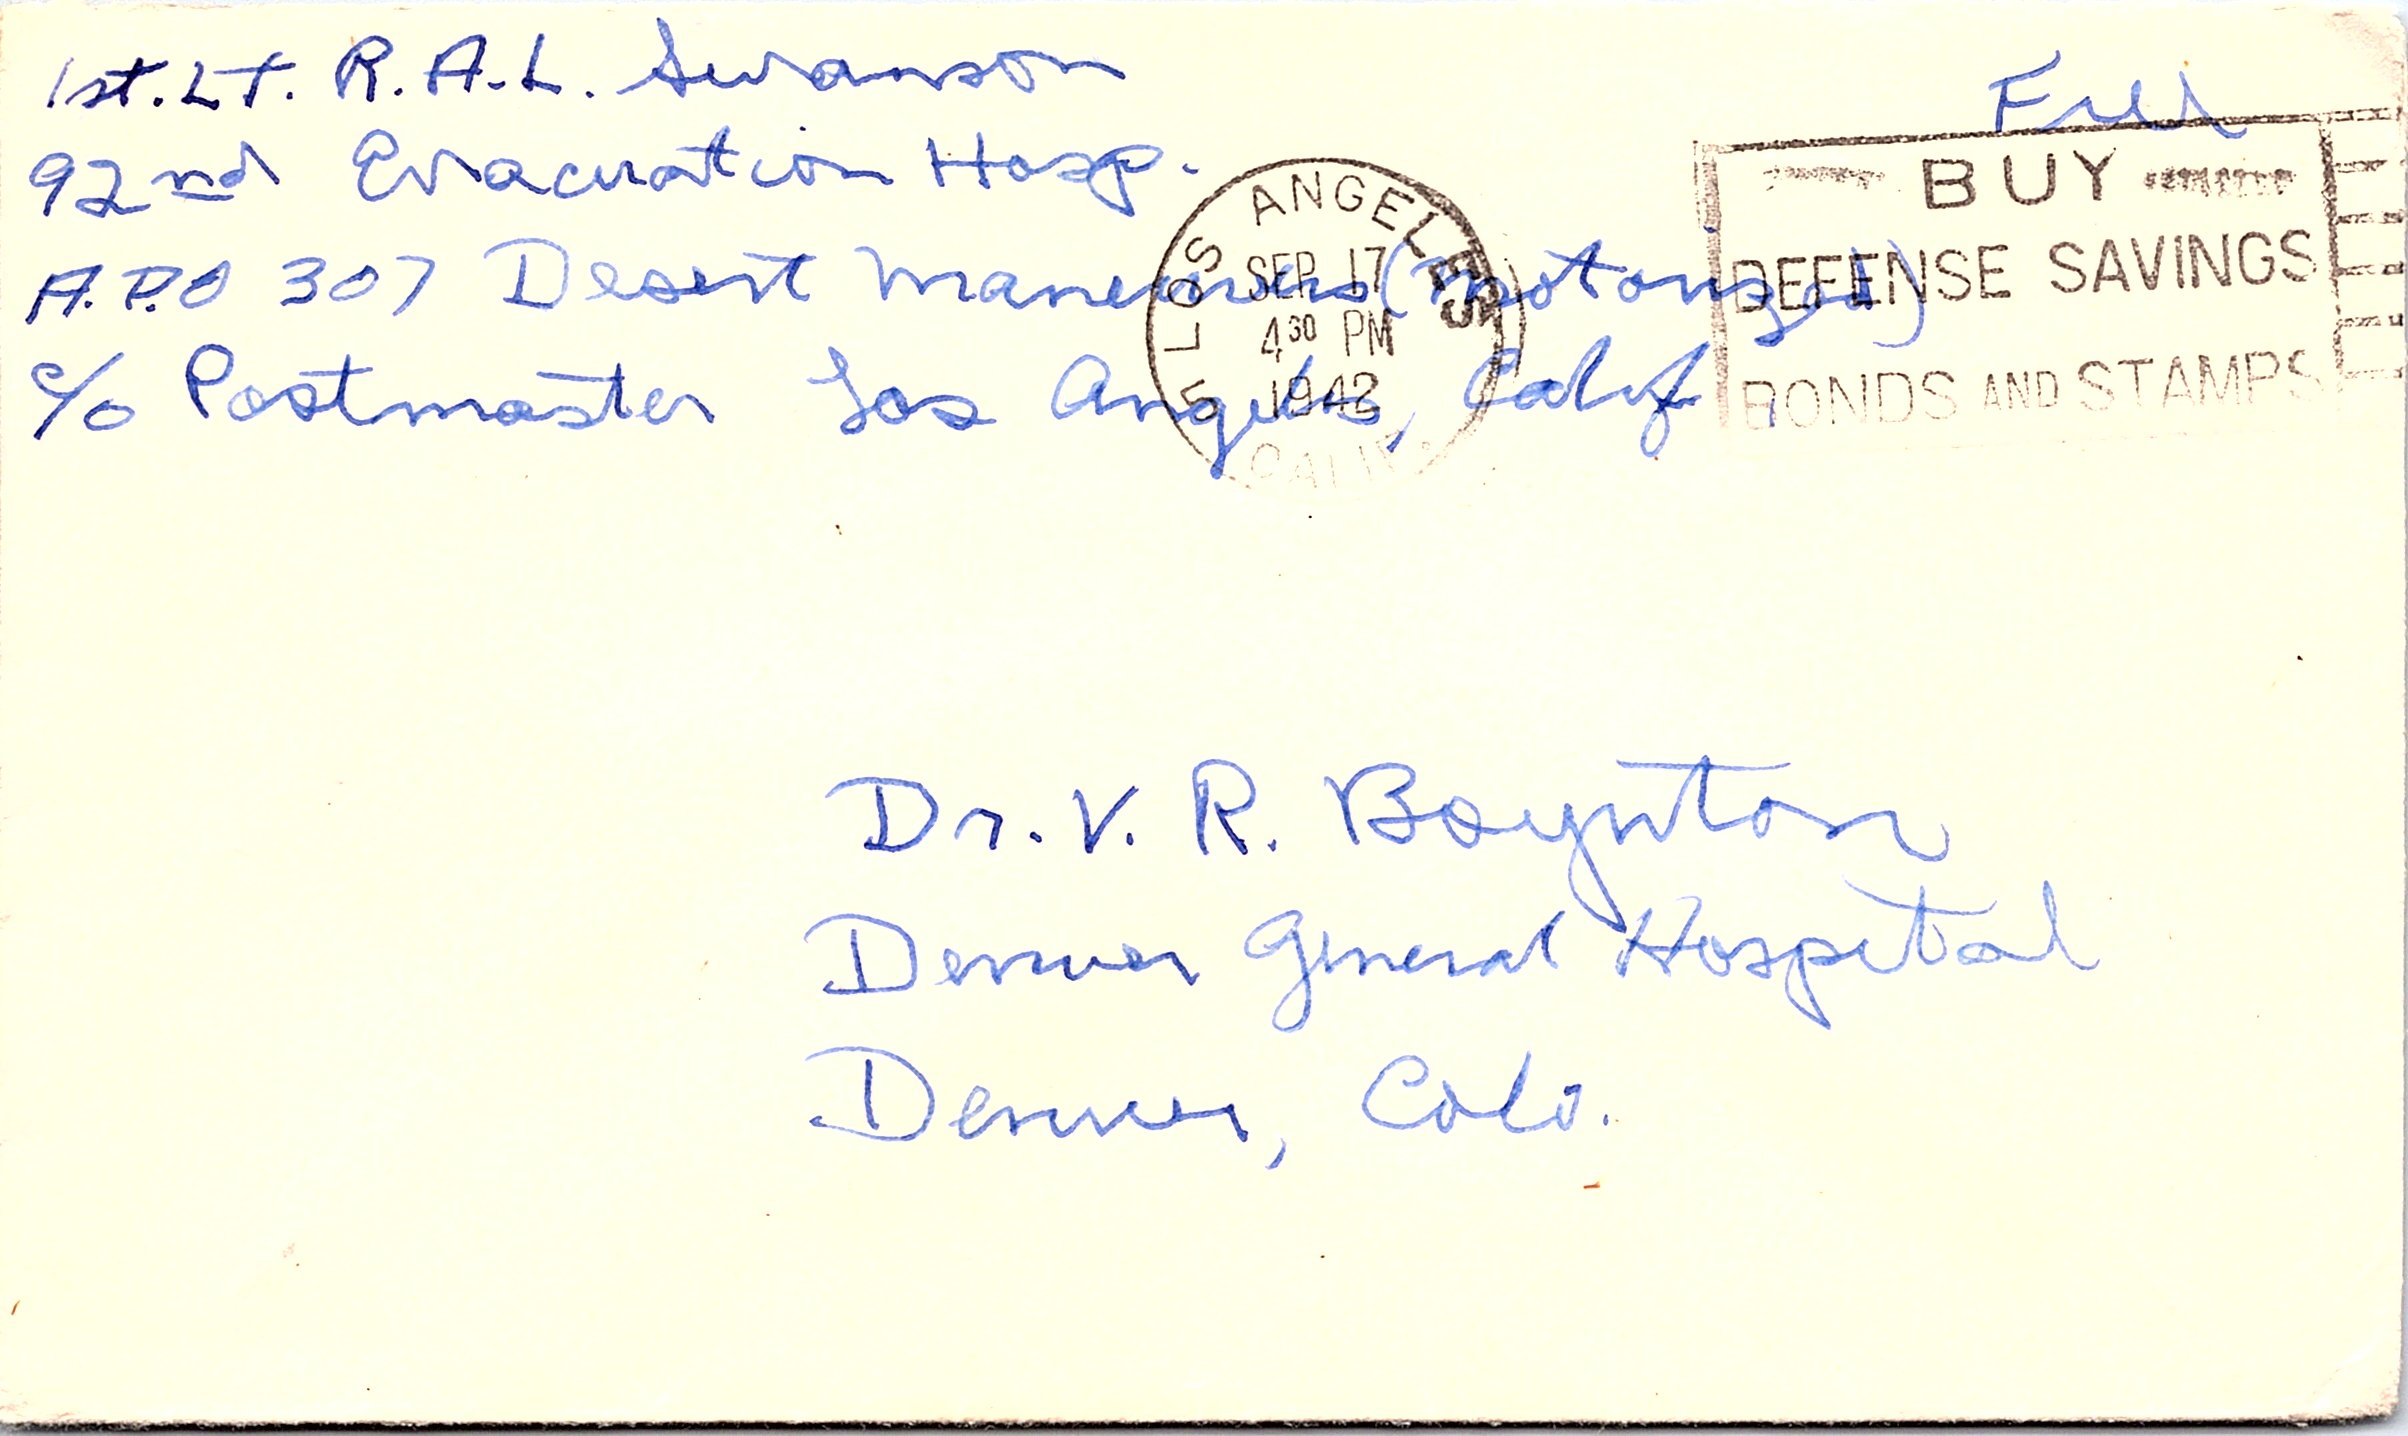 1st. LT. R. A. L. Swanson
Free
92nd Evacuation Hosp.
A.P.O 307 Desert Maneuvers (Motorized)
c/o Postmaster Los Angeles, Calif
LOS ANGELES
SEP 17
4 30 PM
1942
CALIF.
BUY
DEFENSE SAVINGS
BONDS AND STAMPS
Dr. V. R. Boynton
Denver General Hospital
Denver, Colo.